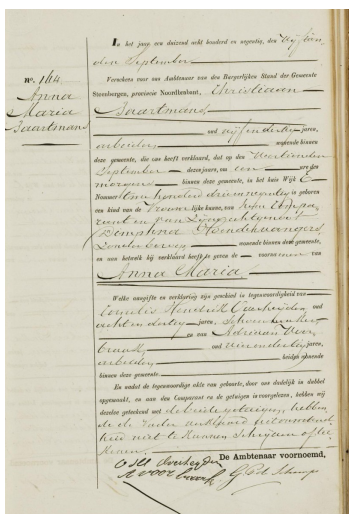 In het jaar een duizend acht honderd en negentig, den vijftienden
September
Nº. 164
Anna
Maria
Baartmans
Verscheen voor ons Ambtenaar van den Burgerlijken Stand der Gemeente
Steenbergen, provincie Noordbrabant, Christiaan
Baartmans,
oud vijfendertig jaren,
arbeider, wonende binnen
deze gemeente, die ons heeft verklaard, dat op den veertienden
September dezes jaars, ten een ure des
morgens binnen deze gemeente, in het huis Wijk E
Nommer honderd drieennegentig is geboren
een kind van de Vrouwelijke kunne, van hem Compa-
rant en van zijne echtgenoot
Dimphena
zonder beroep wonende binnen deze gemeente,
en aan hetwelk hij verklaard heeft te geven de voornamen van
Anna Maria
Welke aangifte en verklaring zijn geschied in tegenwoordigheid van
Cornelis Hendrik Overheijden oud
achtendertig jaren,
en van Adriaan Voor-
braak oud jaren,
arbeider, beiden wonende
binnen deze gemeente
En nadat de tegenwoordige akte van geboorte, door ons dadelijk in dubbel
opgemaakt, en aan den Comparant en de getuigen is voorgelezen, hebben wij
dezelve geteekend met de beide getuigen, hebben-
de de vader
niet te kunnen schrijven of tee-
kenen.
De Ambtenaar voornoemd,
A voorbraak